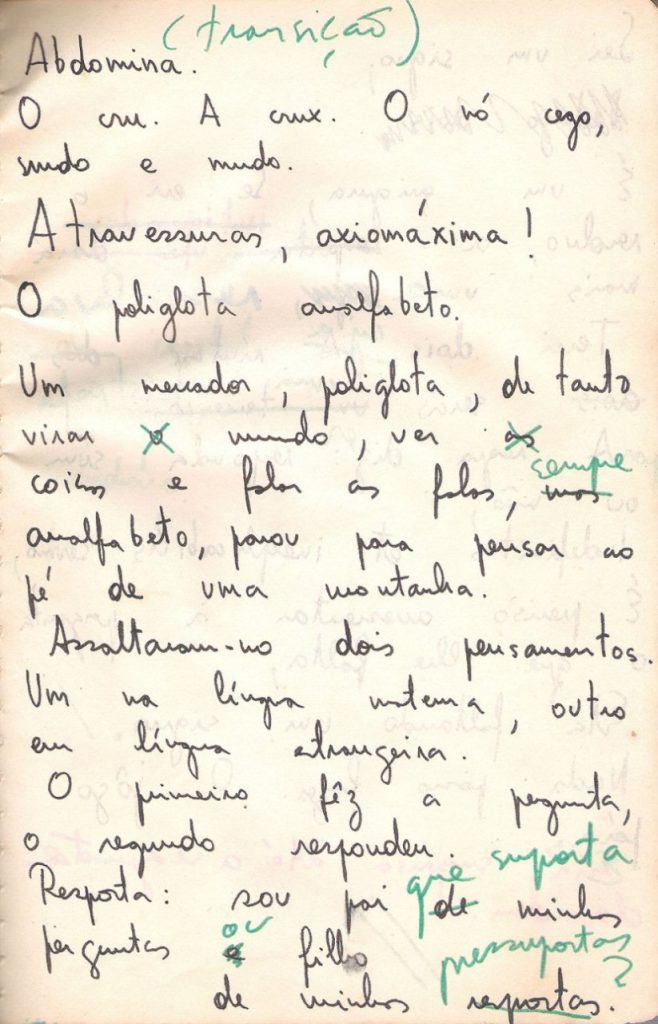 (transição)
Abdomina.
O cru. A crux. O nó cego,
surdo e mudo.
Atravessuras, axiomáxima!
O poliglota analfabeto.
Um mercador, poliglota, de tanto
virar o mundo, ver as
sempre
coisas e falar as falas, mas
analfabeto, parou para pensar ao
pé de uma montanha.
Assaltaram-no dois pensamentos.
Um na língua materna, outro
em língua estrangeira.
O primeiro fêz a pergunta,
o segundo respondeu.
que suporta
Resposta: sou pai de minhas
ou
perguntas e filho
pressupostas?
de minhas respostas.